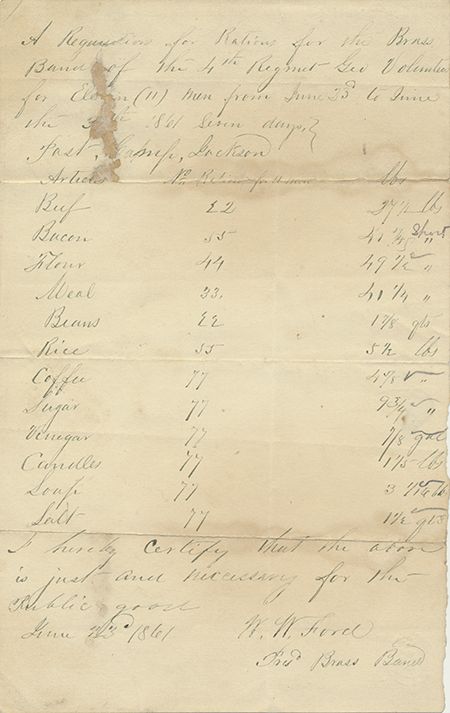 A Requisition for Rations for the Brass
Band of the 4th Regmet Geo Volunteers
for Eleven (11) men from June 23d to June
the 1861 Seven days
Post, Camp, Jackson
Articles No Rations for 11 men lbs
Beef 22 27 1/2 lbs
Bacon 55 41 Short "
Flour 44 49 1/2 "
Meal 33 41 1/4 "
Beans 22 1 7/8 qts
Rice 55 5 1/2 lbs
Coffee 77 "
Sugar 77 9 3/4 "
Vinegar 77 7/8 gal
Candles 77 lbs
Soap 77 3 lb
Salt 77 1 1/2 qts
I hereby Certify that the above
is just and necessary for the
Public good
June 23d 1861 W. W. Ford
Brass Band